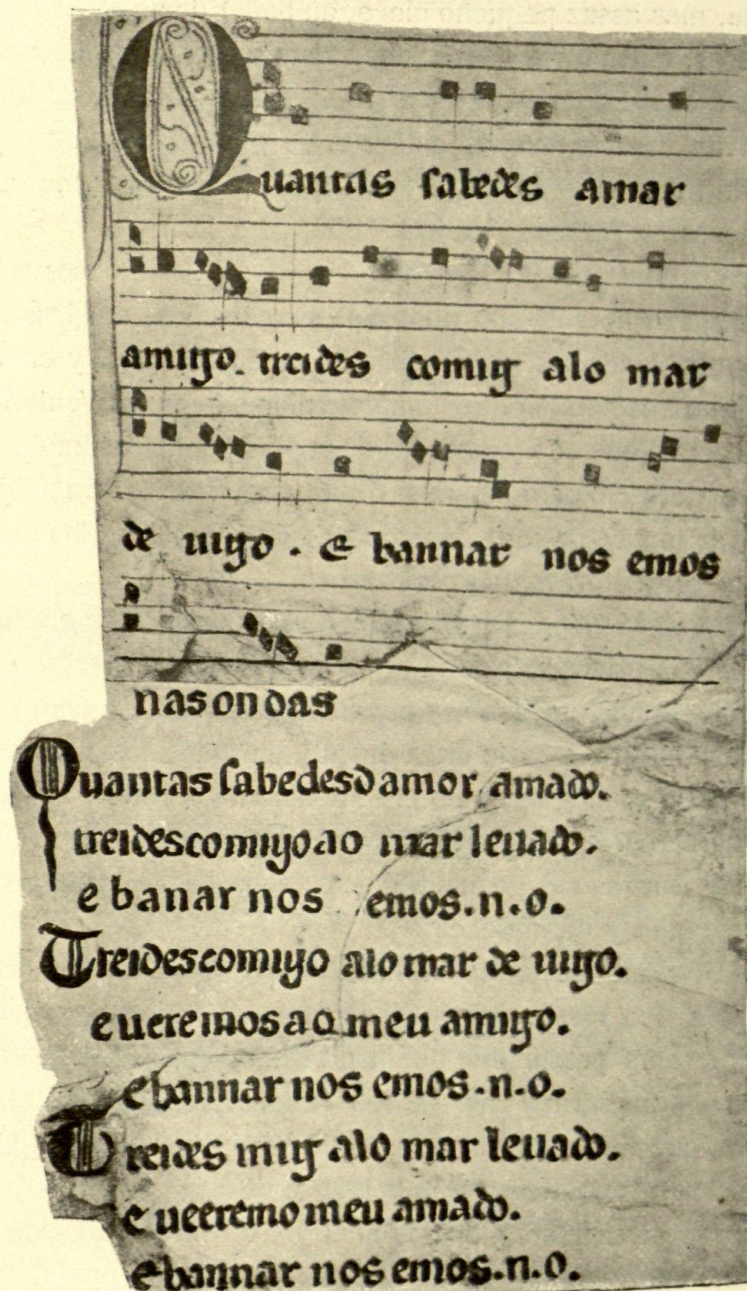 Quantas sabedes amar
amigo. treides comig alo mar
de uigo. e bannar nos emos
nas ondas
Quantas sabedes damor amado.
treides comigo ao mar leuado.
e banar nos emos.n.o.
Treides comigo alo mar de uigo.
e ueremos ao meu amigo.
e bannar nos emos.n.o.
Treides mig alo mar leuado.
e ueeremo meu amado.
e bannar nos emos.n.o.